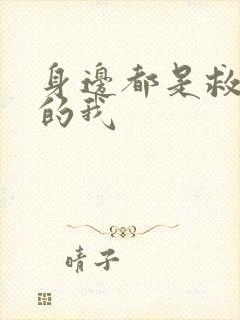 身邊都是救
的我
晴子